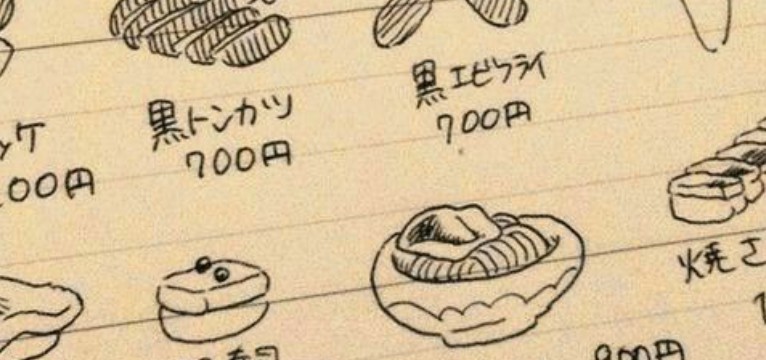 黒エビフライ
700円
黒トンカツ
700円
ッケ
00円
焼さ
寿司
800円